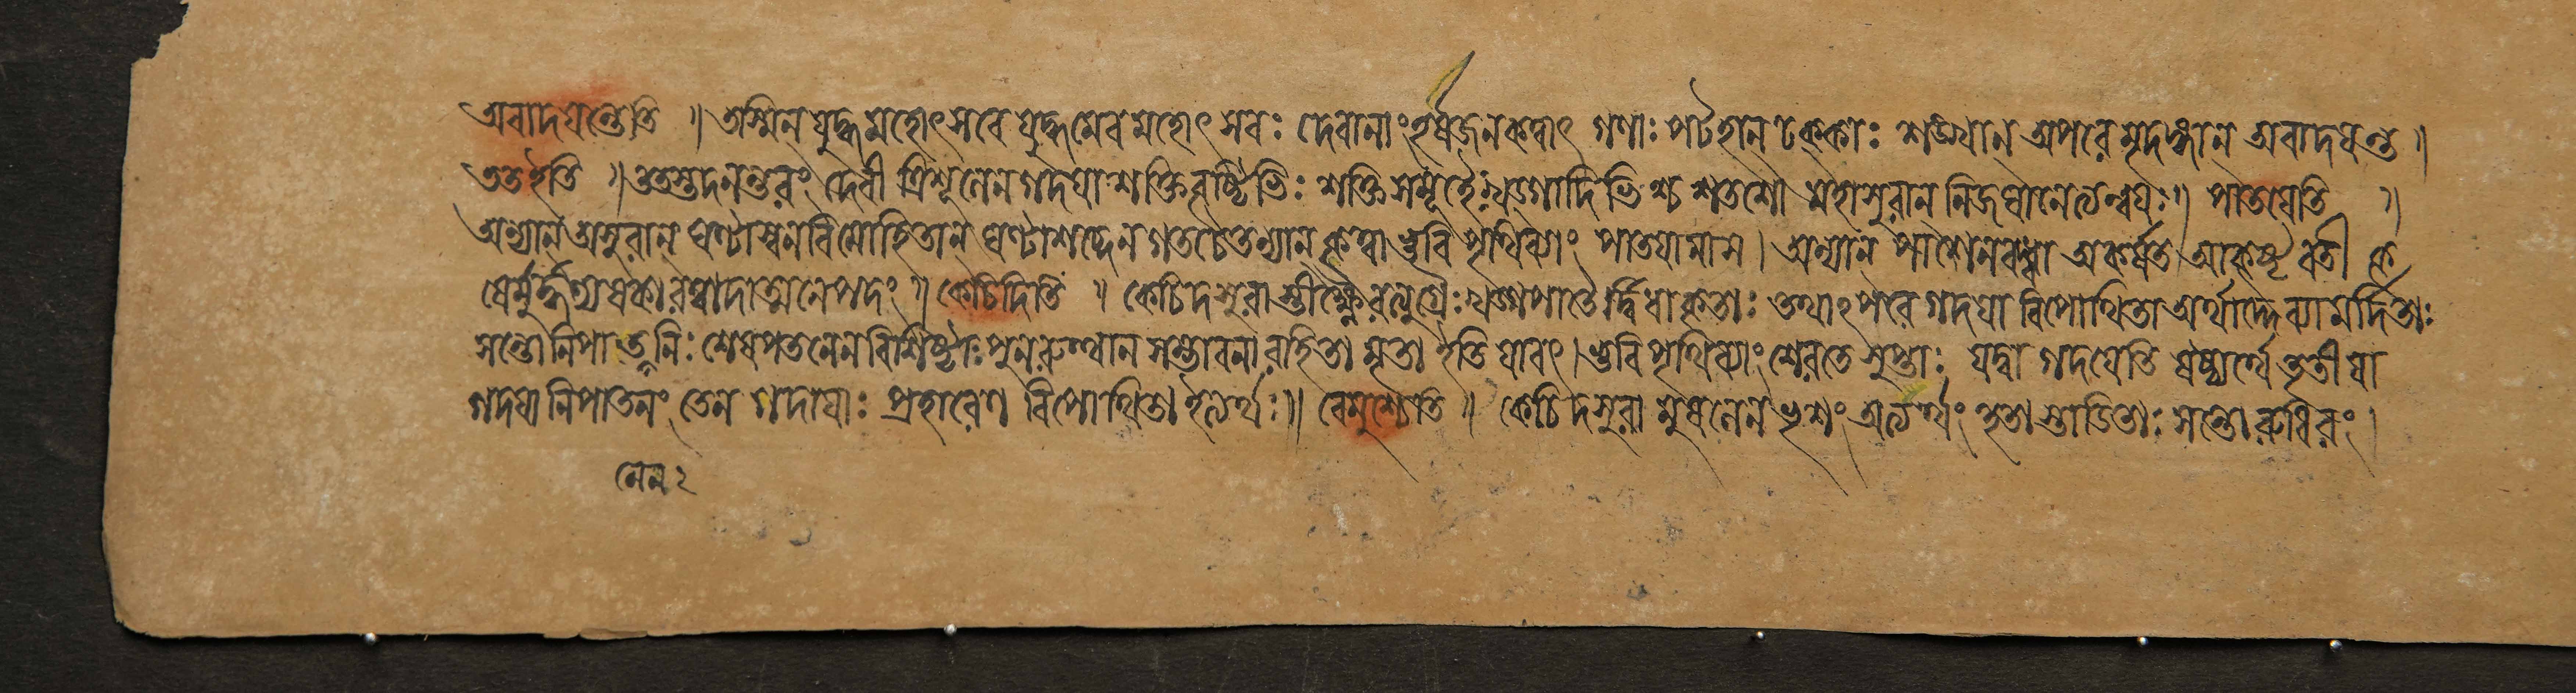 অবাদযন্তেতি ॥ তস্মিন যুদ্ধমহোৎসবে যুদ্ধমেব মহোৎসবঃ দেবানাং হর্ষজনকত্বাৎ গণাঃ পটহান্ ঢক্কাঃ শঙ্খান্ অপরে মৃদঙ্গান অবাদযন্ত ॥
ততইতি ॥ ততস্তদনন্তরং দেবী ত্রিশূলেন গদযা শক্তিবৃষ্টিভিঃ শক্তিসমূহৈঃ খড্গাদিভিশ্চ শতশো মহাসুরান নিজঘানেত্যন্বযঃ ॥ পাতযেতি ॥
অন্যান অসুরান্ ঘণ্টাস্বনবিমোহিতান্ ঘণ্টাশব্দেন গতচৈতন্যান্ কৃত্বা ভুবি পৃথিব্যাং পাতযামাস । অন্যান পাশেন বদ্ধা অকর্ষত আকৃষ্টবতী কৃ
ষের্মূর্দ্ধণ্যষকারত্বাদাত্মনেপদং ॥ কেচিদিতি ॥ কেচিদসুরাস্তীক্ষ্ণৈরত্যুগ্রৈঃ খড্গপাতৈর্দ্বিধাকৃতাঃ তথাঽপরে গদযা বিপোথিতা অর্থাদ্দেব্যা মর্দিতাঃ
সন্তো নিপাতনিঃশেষপতনেন বিশিষ্টাঃ পুনরুত্থানসম্ভাবনারাহিতা মৃতা ইতি যাবৎ । ভুবি পৃথিব্যাং শেরতে সুপ্তাঃ যদ্বা গদযেতি ষষ্ঠ্যর্থে তৃতীযা
গদযা নিপাতনং তেন গদাযাঃ প্রহারেণ বিপোথিতা ইত্যর্থঃ ॥ বেমুশ্চেতি ॥ কেচিদসুরা মুষলেন ভৃশং অত্যর্থং হতা স্তাডিতাঃ সন্তো রুধিরং ।
নেন ২